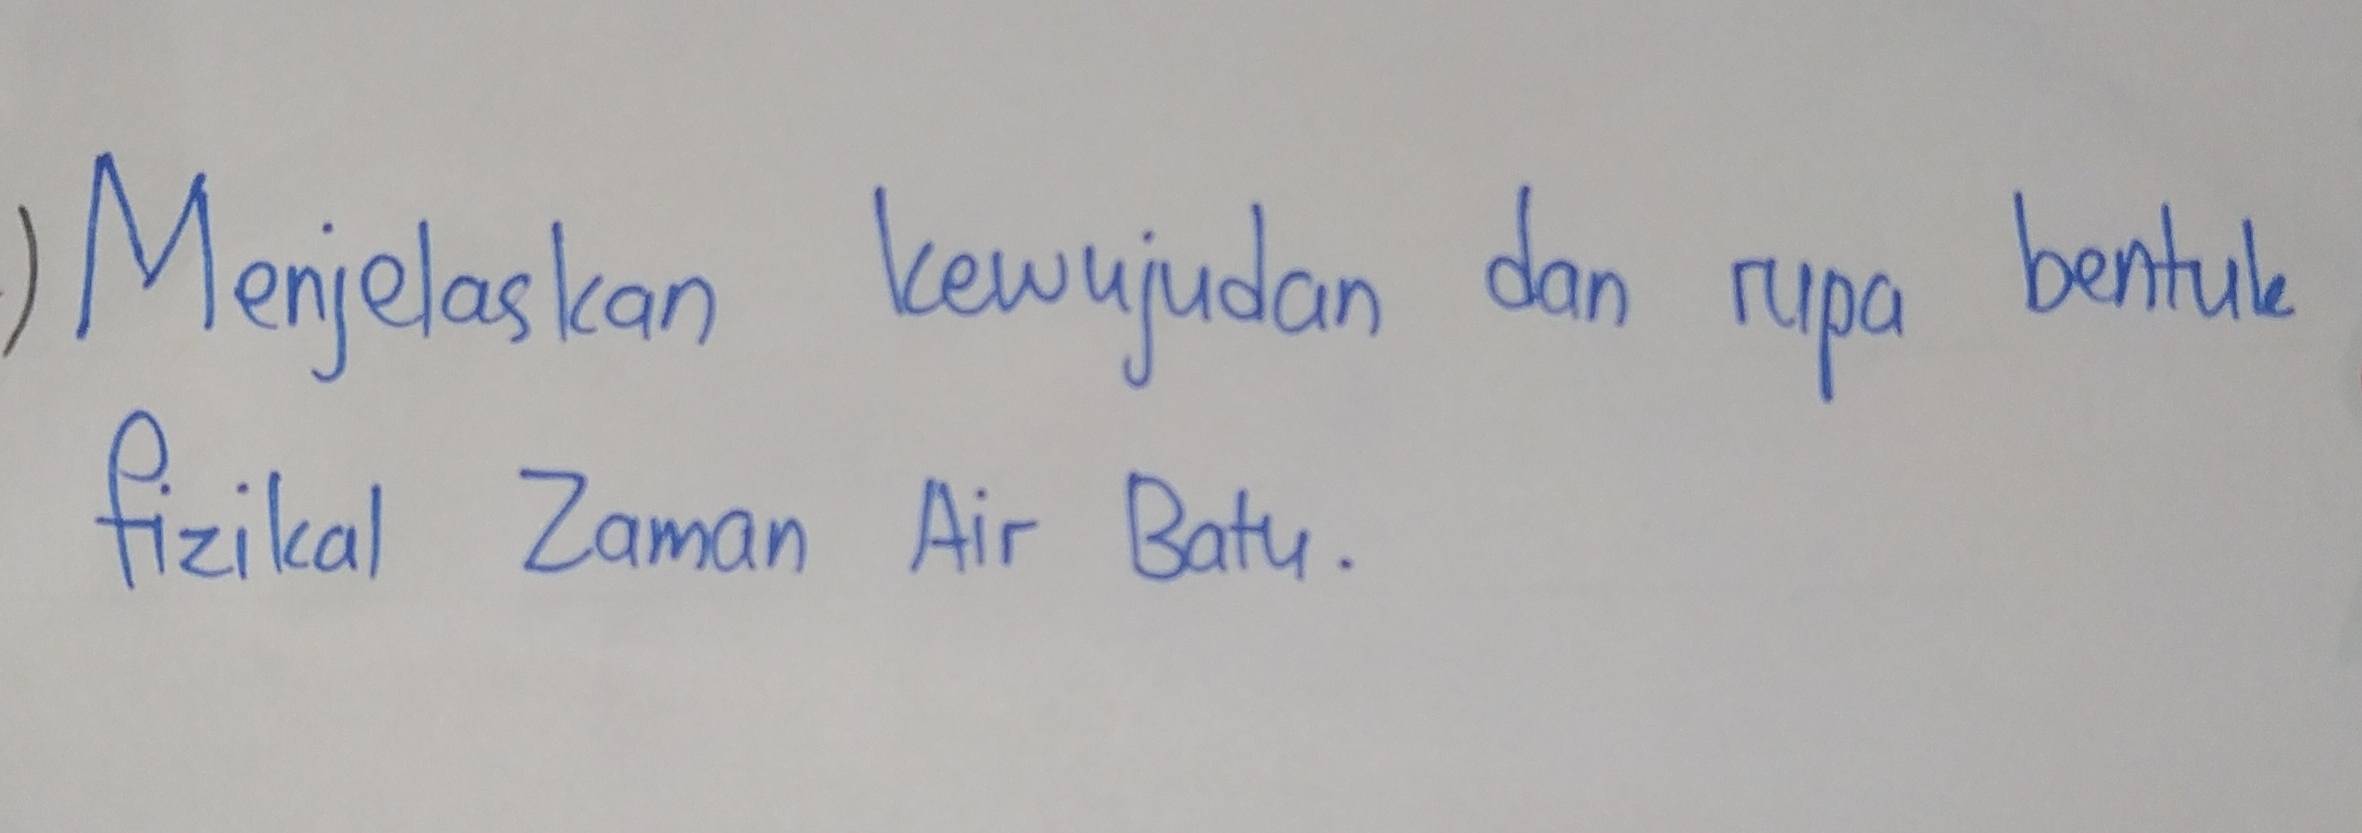 ) Menjelaskan kewujudan dan rupa bentuk
fizikal Zaman Air Batu.